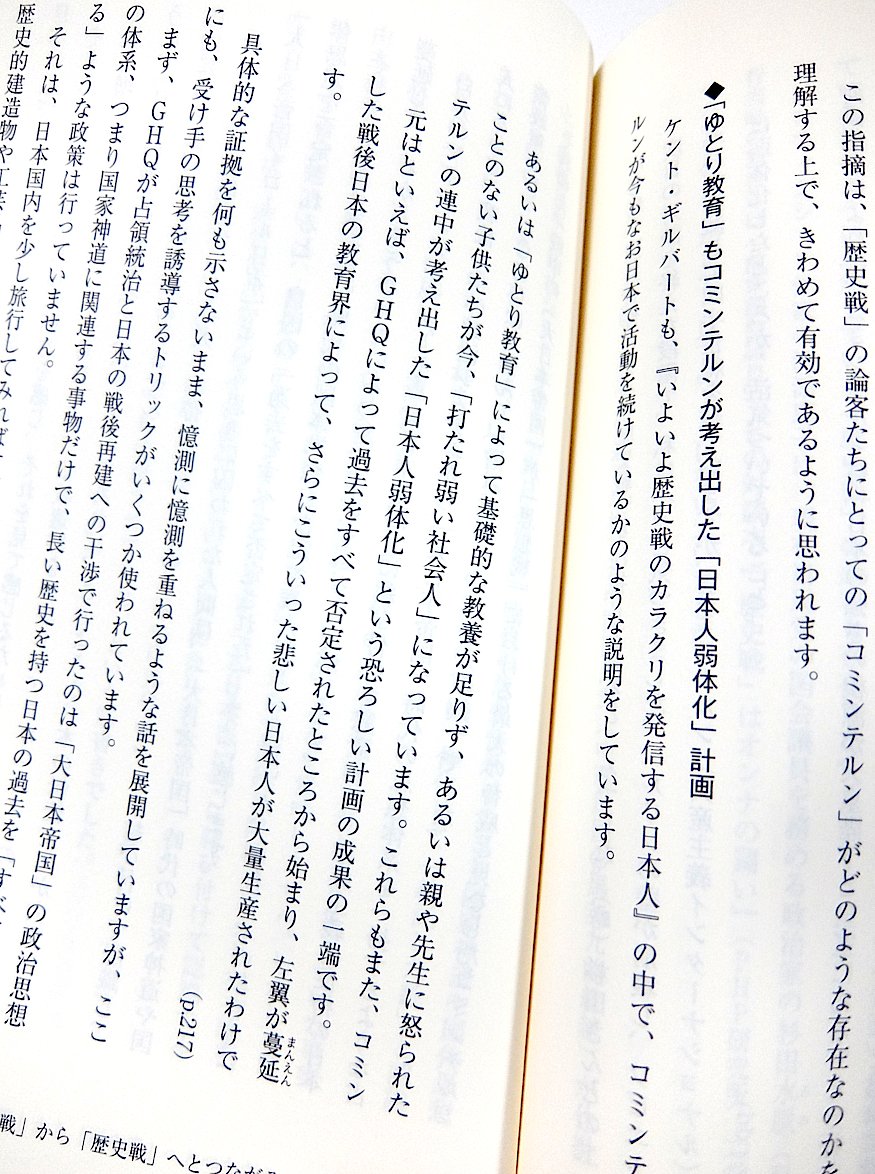 この指摘は、「歴史戦」の論客たちにとっての「コミンテルン」がどのような存在なのかを
理解する上で、きわめて有効であるように思われます。
◆「ゆとり教育」もコミンテルンが考え出した「日本人弱体化」計画
ケント・ギルバートも、『いよいよ歴史戦のカラクリを発信する日本人』の中で、コミンテ
ルンが今もなお日本で活動を続けているかのような説明をしています。
あるいは「ゆとり教育」によって基礎的な教養が足りず、あるいは親や先生に怒られた
ことのない子供たちが今、「打たれ弱い社会人」になっています。これらもまた、コミン
テルンの連中が考え出した「日本人弱体化」という恐ろしい計画の成果の一端です。
元はといえば、GHQによって過去をすべて否定されたところから始まり、左翼が蔓延
まんえん
した戦後日本の教育界によって、さらにこういった悲しい日本人が大量生産されたわけで
す。
(p.217)
具体的な証拠を何も示さないまま、憶測に憶測を重ねるような話を展開していますが、ここ
にも、受け手の思考を誘導するトリックがいくつか使われています。
まず、GHQが占領統治と日本の戦後再建への干渉で行ったのは「大日本帝国」の政治思想
の体系、つまり国家神道に関連する事物だけで、長い歴史を持つ日本の過去を「すべ
る」ような政策は行っていません。
それは、日本国内を少し旅行してみれば
歴史的建造物や工芸
戦」から「歴史戦」へとつなが